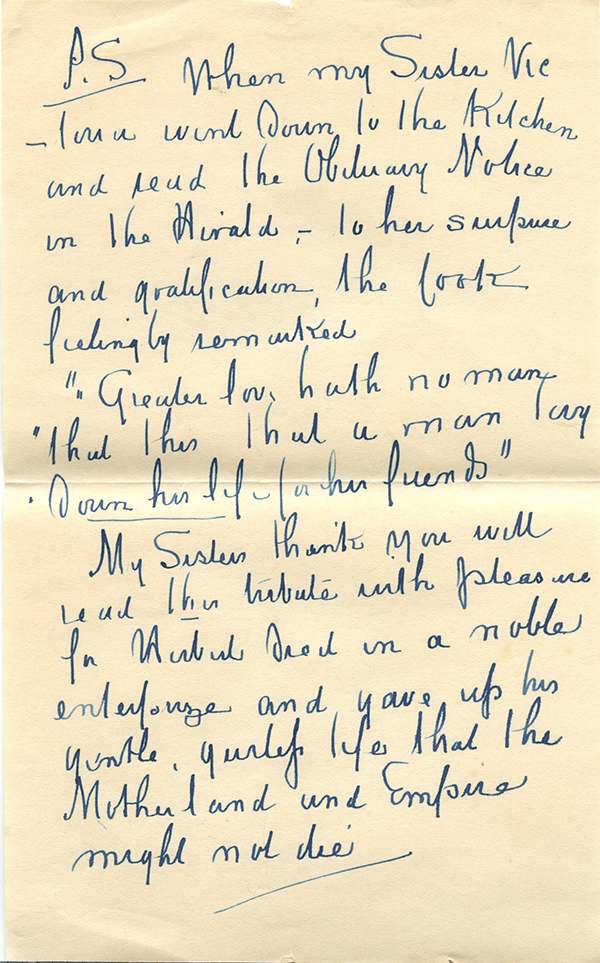 P.S When my Sister Vic
- toria went Down to the Kitchen
and read the Obituary Notice
in the Herald, - to her surprise
and gratification, the Cook
feelingly remarked
"Greater love hath no man
"that this that a man lay
Down his life for his friends"
My Sisters think you will
read this tribute with pleasure
for Herbert Died in a noble
enterprize and gave up his
gentle, guiless life that the
Motherland and Empire
might not die